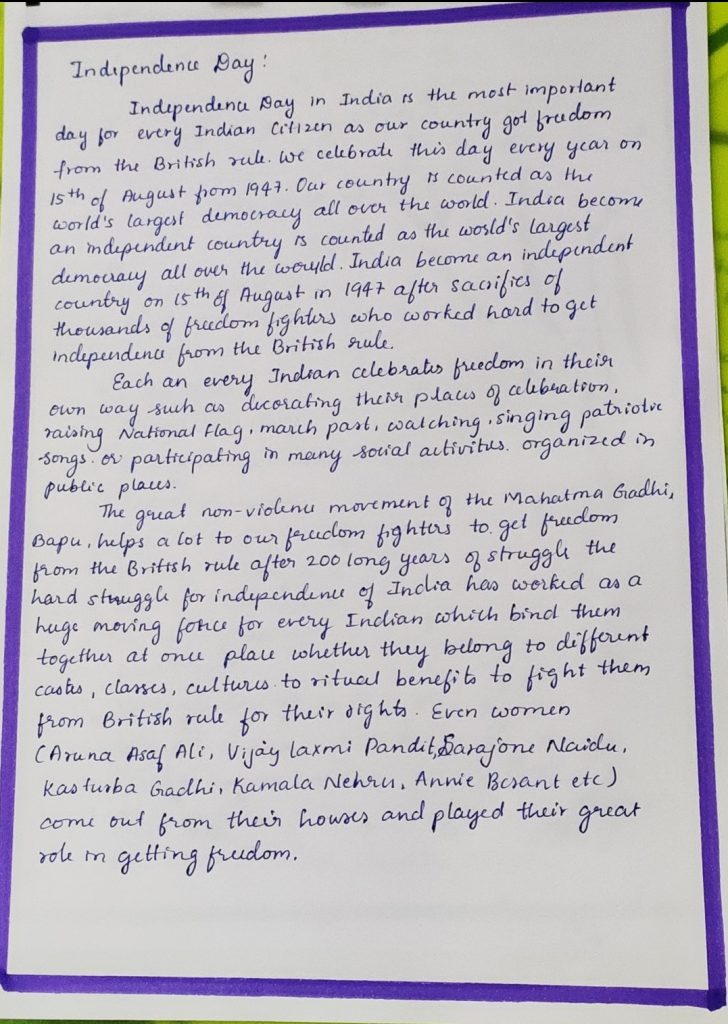 Independence Day:
Independence Day in India is the most important
day for every Indian Citizen as our country got freedom
from the British rule. We celebrate this day every year on
15th of August from 1947. Our country is counted as the
world's largest democracy all over the world. India become
an independent country is counted as the world's largest
democracy all over the wouyld. India become an independent
country on 15th of August in 1947 after sacrifies of
thousands of freedom fighters who worked hard to get
independence from the British rule.
Each an every Indian celebrates freedom in their
own way such as decorating their places of celebration,
raising National flag, march past, watching, singing patriotic
songs. or participating in many social activites. organized in
public places.
The great non-violence movement of the Mahatma Gadhi,
Bapu, helps a lot to our freedom fighters to get freedom
from the British rule after 200 long years of struggle the
hard struggle for independence of India has worked as a
huge moving force for every Indian which bind them
together at once place whether they belong to different
castes, classes, cultures to ritual benefits to fight them
from British rule for their rights. Even women
(Aruna Asaf Ali, Vijay laxmi Pandit, Sarajone Naidu,
Kasturba Gadhi, Kamala Nehru, Annie Besant etc)
come out from their houses and played their great
role in getting freedom.